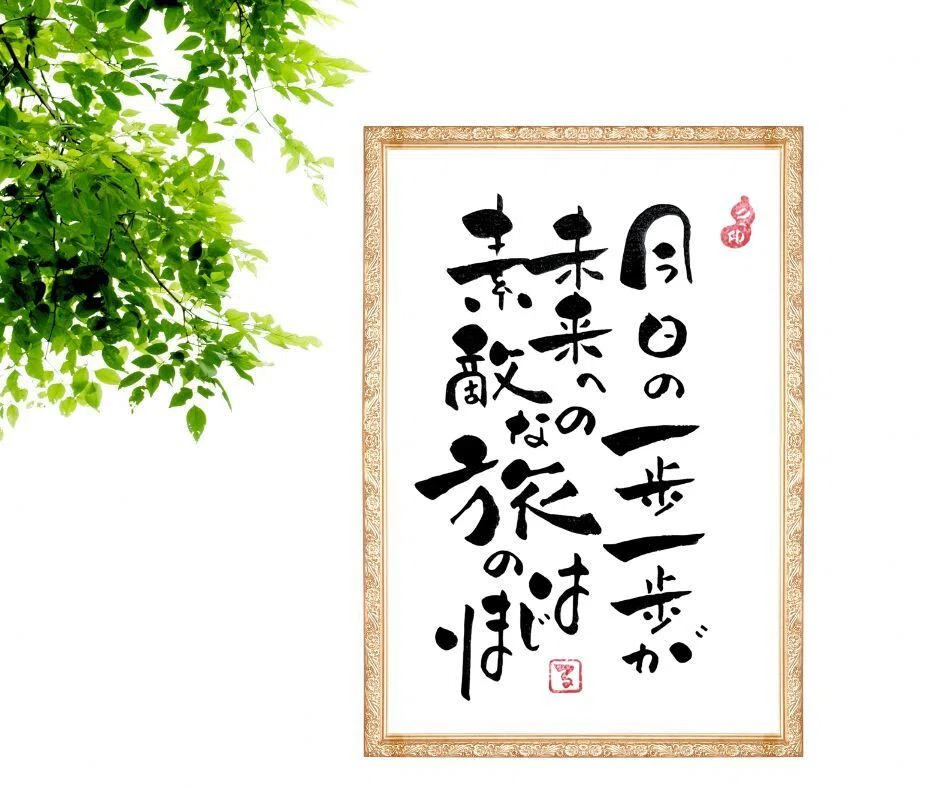 今日の一歩一歩が
未来への
素敵な旅のはじまり
る